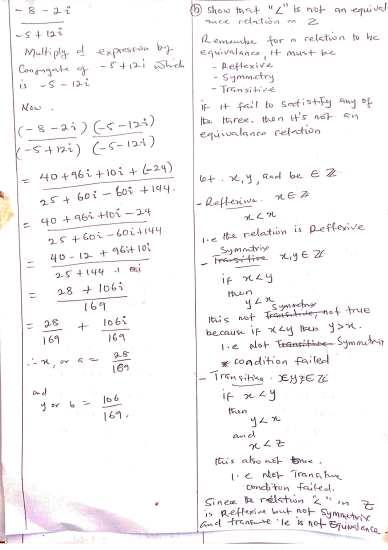 -8 - 2i
-5 + 12i
Multiply d expression by
Conjugate of -5+12i which
is -5 - 12i
Now.
(-8-2i) (-5-12i)
(-5+12i) (-5-12i)
= 40+96i+10i+(-24)
25+60i-60i+144.
= 40+96i+10i-24
25+60i-60i+144
= 40-12+96i+10i
25+144
= 28+106i
169
= 28 + 106i
169 169
∴ x, or a = 28
169
and
y or b = 106
169.
(b) Show that "<" is not an equival
ence relation on Z
Remember for a relation to be
equivalence, it must be
- Reflexive
- Symmetry
- Transitive
if it fail to satisfy any of
the three. then it's not an
equivalance relation
let. x, y, and be ∈ Z
- Reflexive. x∈Z
x<x
i.e the relation is Reflexive
Symmetrix
- Transitive x,y∈Z
if x<y
then
y<x
Symmetry
this not Transitive, not true
because if x<y then y>x.
i.e Not Transitive Symmetrix
* condition failed
- Transitive. x,y,z∈Z
if x<y
then
y<x
and
x<z
this also not true.
i.e Not Transitive
condition failed.
Since the relation "<" in Z
is Reflexive but not Symmetrix
and transive ie is not Equivalence